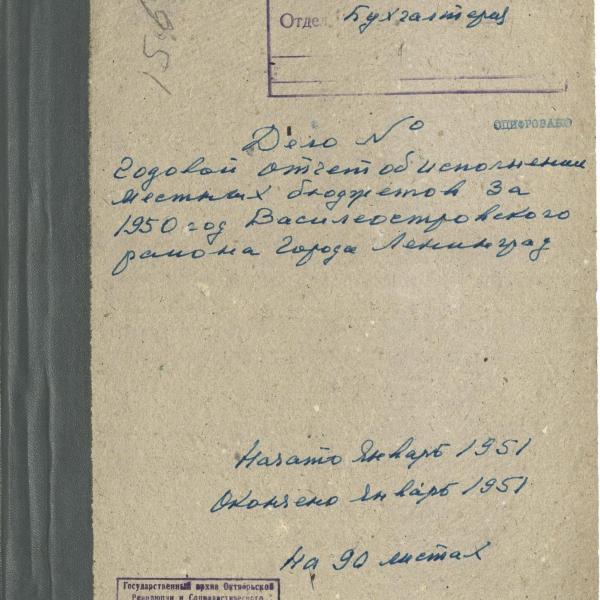 Отдел Бухгалтерия
ОЦИФРОВАНО
Дело №
Годовой отчет об исполнении
местных бюджетов за
1950 год Василеостровского
района города Ленинград
Начато Январь 1951
Окончено Январь 1951
на 90 листах
Государственный архив Октябрьской
Революции и Социалистического